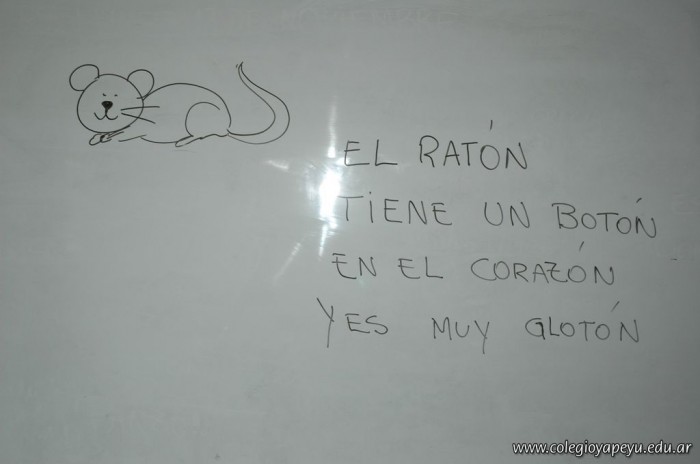 EL RATÓN
TIENE UN BOTÓN
EN EL CORAZÓN
Y ES MUY GLOTÓN
www.colegioyapeyu.edu.ar